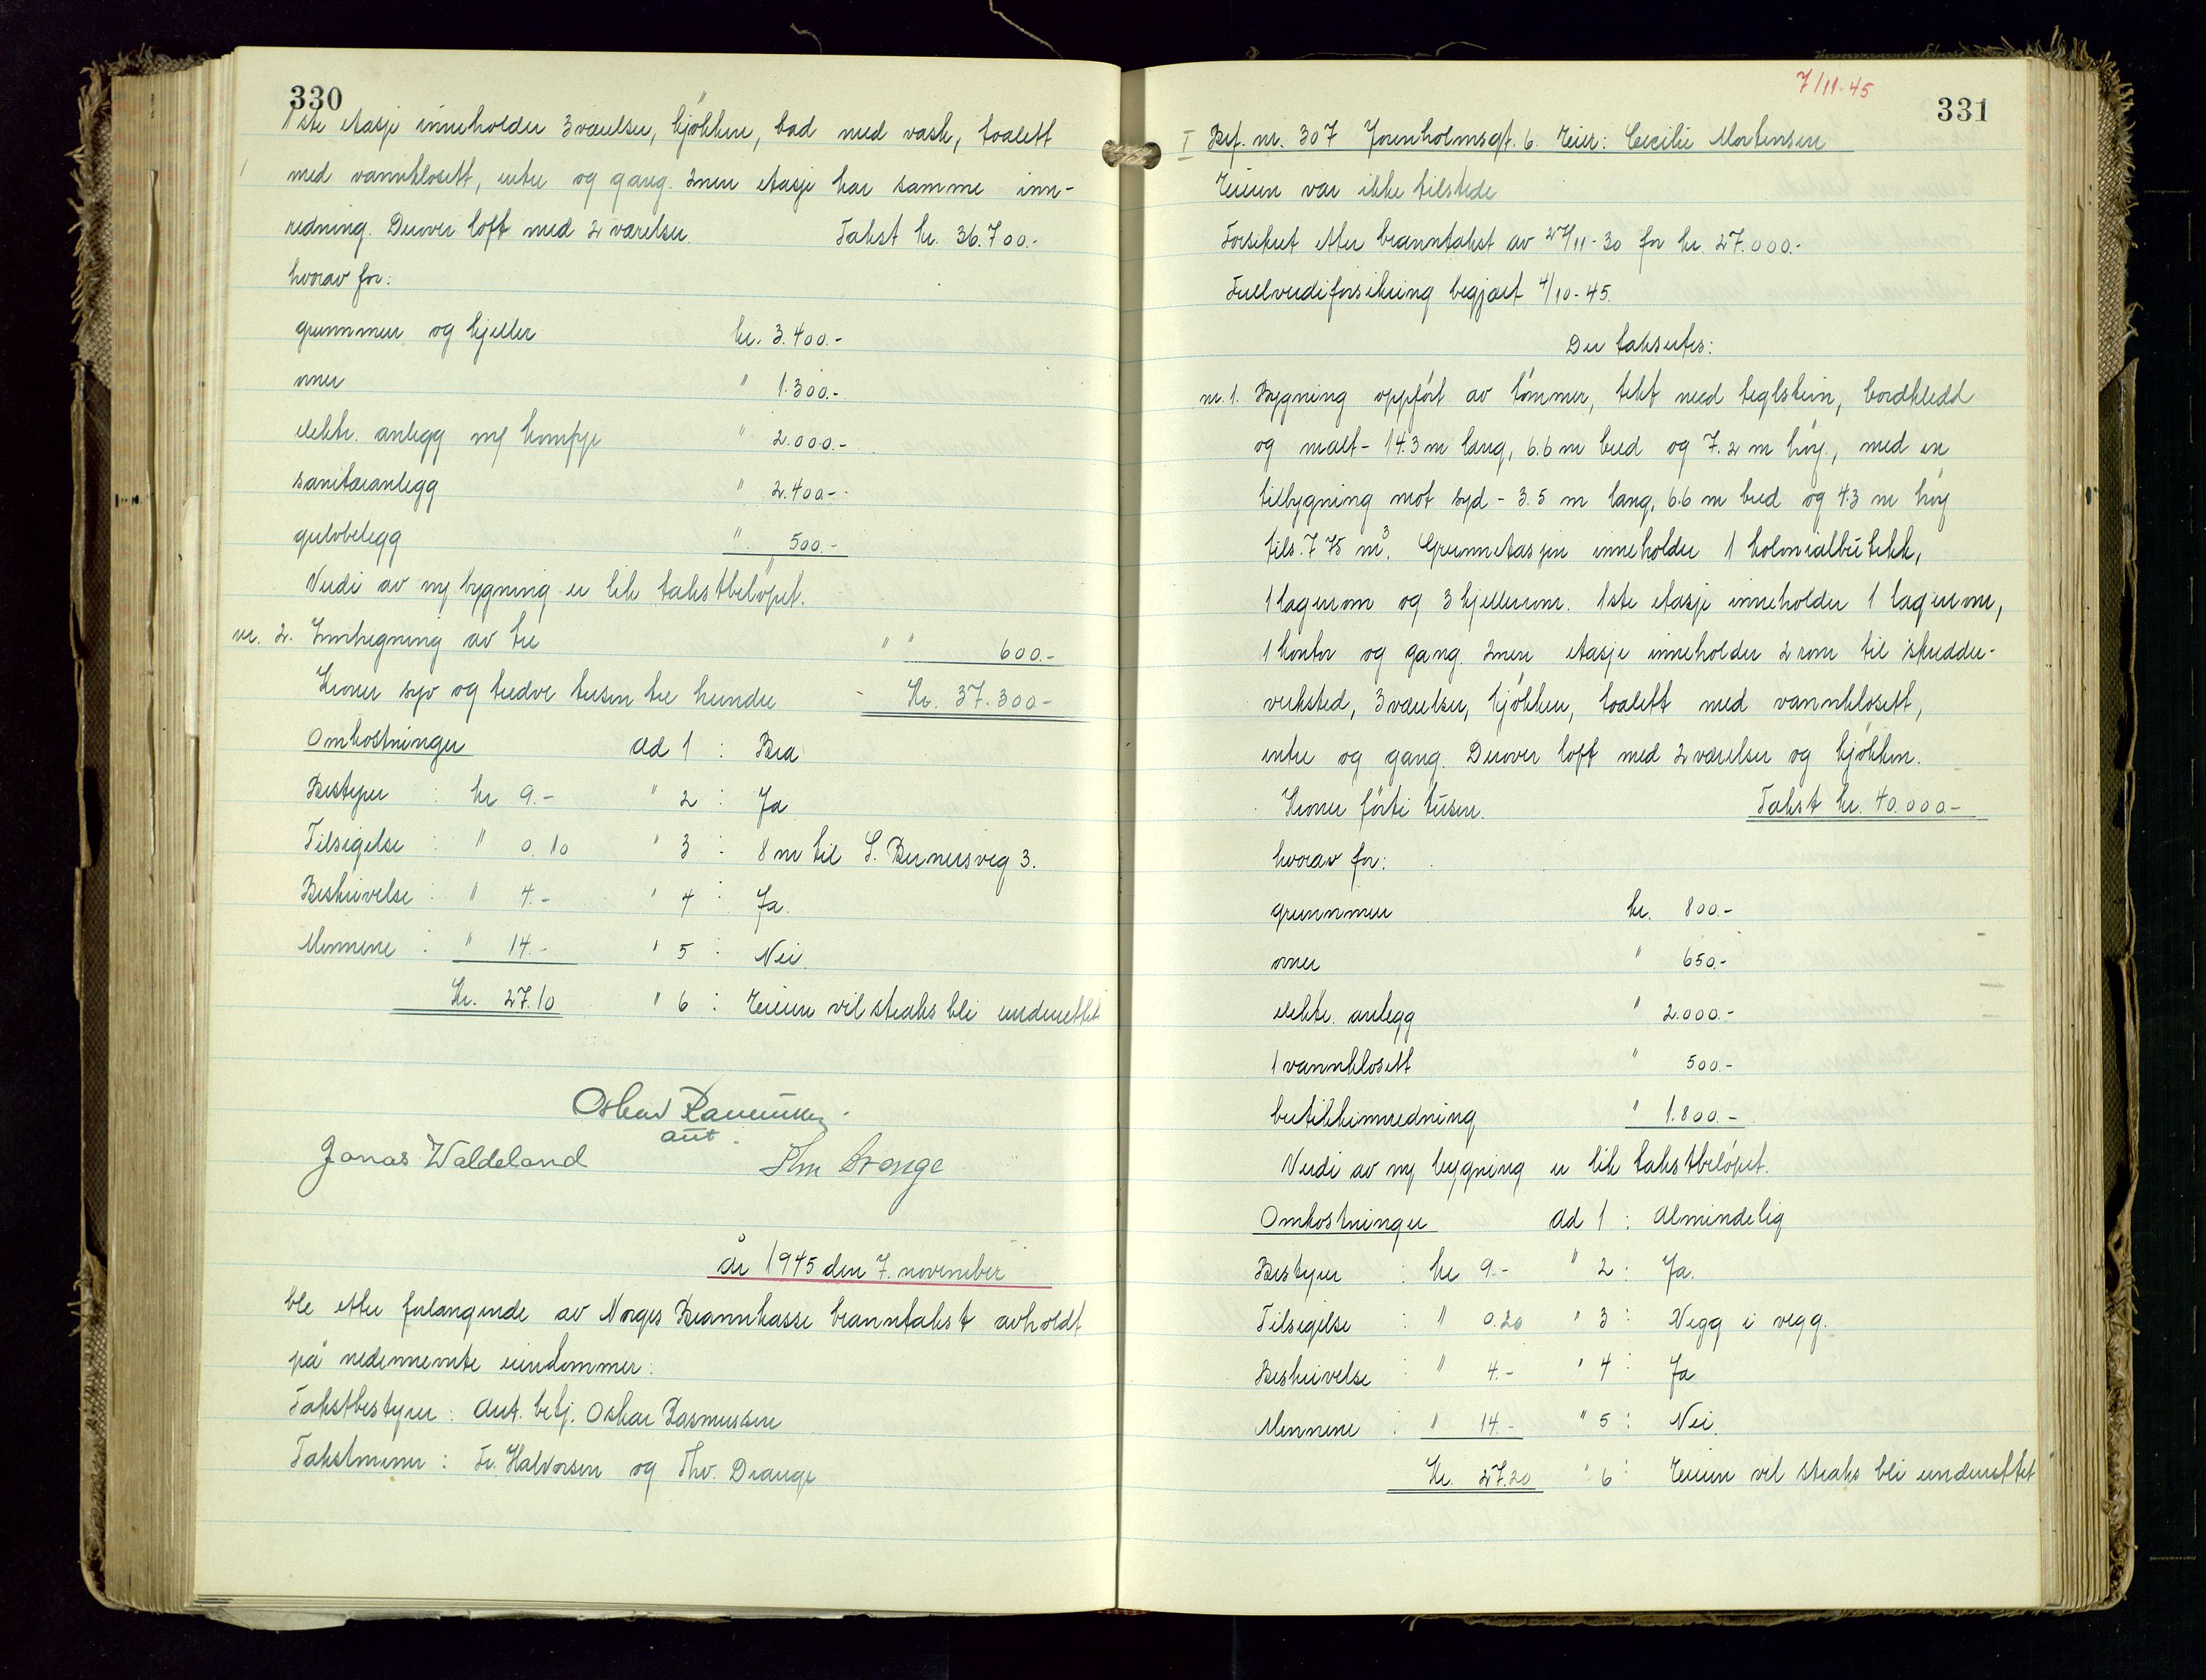 330
1ste etasje inneholder 3 værelser, kjökken, bad med vask, toalett
med vannklosett, entre og gang. 2nen etasje har samme inn-
redning. Derover loft med 2 værelser. Takst kr. 36.700.-
hvorav for:
grunnmur og kjeller kr. 3.400.-
ovner " 1.300.-
elektr. anlegg m/ komfyr " 2.000.-
sanitæranlegg " 2.400.-
gulvbelegg " 500.-
Verdi av ny bygning er lik takstbelöpet.
nr. 2. Innhegning av tre " " 600.-
Kroner syv og tredve tusen tre hundre - Kr. 37.300.-
Omkostninger ad 1 : Bra
Bestyrer : kr 9.- " 2 : Ja
Tilsigelse : " 0.10 " 3 : 8 m til S. Bernersveg 3.
Beskrivelse : " 4.- " 4 : Ja.
Mennene : " 14.- " 5 : Nei.
Kr. 27.10 " 6 : Eieren vil straks bli underrettet
Oskar Rasmussen
aut.
Jonas Waldeland Thv Drange
År 1945 den 7. november
ble etter forlangende av Norges Brannkasse branntakst avholdt
på nedennevnte eiendommer:
Takstbestyrer: Aut. betj. Oskar Rasmussen
Takstmenn: Fr. Halvorsen og Thv. Drange
7/11-45
331
I Brf. nr. 307 Jorenholmsgt. 6. Eier: Cecilie Mortensen
Eieren var ikke tilstede
Forsikret etter branntakst av 27/11-30 for kr. 27.000.-
Fullverdiforsikring begjært 4/10-45.
Der takseres:
nr. 1. Bygning oppfört av tömmer, tekt med teglstein, bordkledd
og malt - 14.3 m lang, 6.6 m bred og 7.2 m höy., med en
tilbygning mot syd - 3.5 m lang, 6.6 m bred og 4.3 m höy
tils. 775 m3. Grunnetasjen inneholder 1 kolonialbutikk,
1 lagerrom og 3 kjellerrom. 1ste etasje inneholder 1 lagerrom,
1 kontor og gang. 2nen etasje inneholder 2 rom til skredder-
verksted, 3 værelser, kjökken, toalett med vannklosett,
entre og gang. Derover loft med 2 værelser og kjökken.
Kroner förti tusen. Takst kr. 40.000.-
hvorav for:
grunnmur kr. 800.-
ovner " 650.-
elektr. anlegg " 2.000.-
1 vannklosett " 500.-
butikkinnredning " 1.800.-
Verdi av ny bygning er lik takstbelöpet.
Omkostninger ad 1 : Almindelig
Bestyrer : kr 9.- " 2 : Ja.
Tilsigelse : " 0.20 " 3 : Vegg i vegg.
Beskrivelse : " 4.- " 4 : Ja
Mennene : " 14.- " 5 : Nei.
Kr. 27.20 " 6 : Eieren vil straks bli underrettet